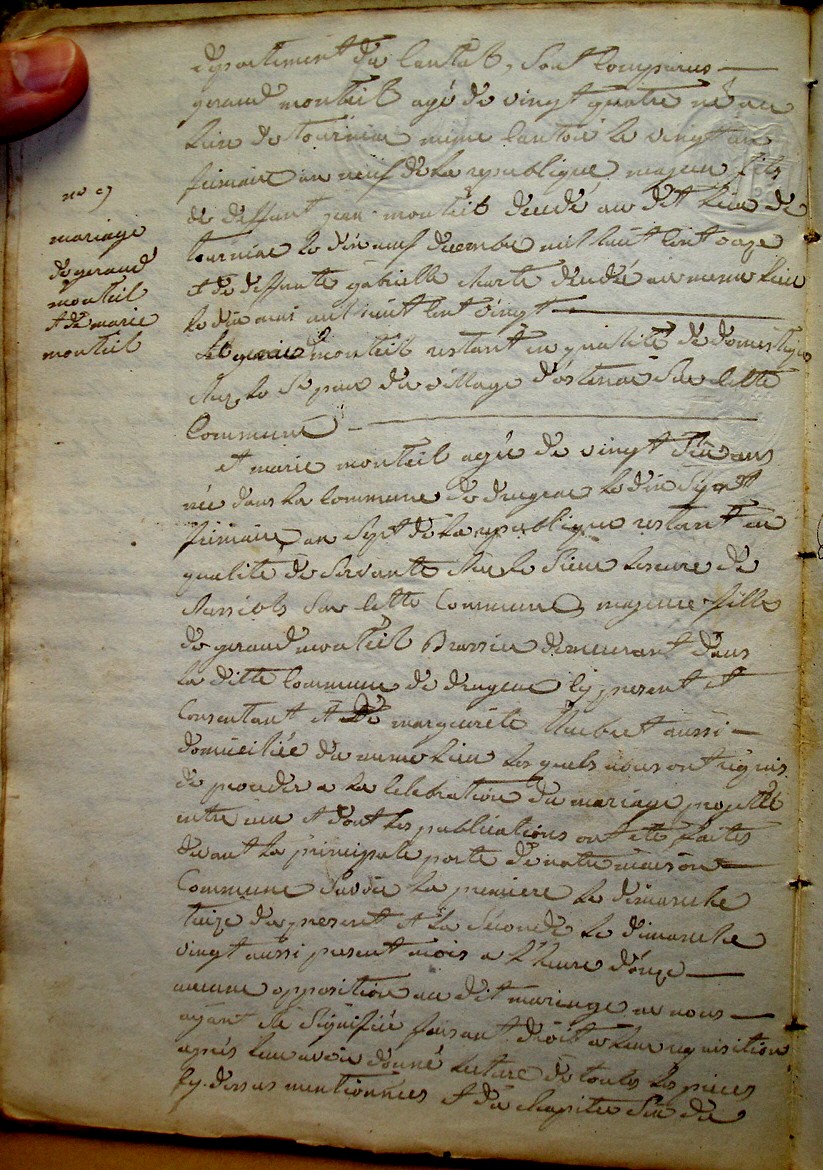 no 9
mariage
de geraud
monteil
et de marie
monteil
departement du Cantal, sont comparus
geraud monteil agé de vingt quatre né au
lieu de tourniac meme canton le vingt un
frimaire an neuf de la republique majeur fils
de deffunt jean monteil decedé au dit lieu de
tourniac le dix neuf decembre mil huit cent onze
et de deffunte gabrielle charte decedé au meme lieu
le dix mai mil huit cent vingt
le geraud monteil restant en qualité de domestique
chez le Sr du village d'ostenac sur cette
Commune
et marie monteil agée de vingt six ans
née dans la Commune de drugeac le dix sept
frimaire an sept de la republique restant en
qualité de servante chez le sieur de
sur cette Commune, majeure fille
de geraud monteil Brassier demeurant dans
la ditte Commune de drugeac cy present et
Consentant et de margueritte aussi
domiciliée du meme lieu lesquels nous ont requis
de proceder a la celebration du mariage projetté
entre eux et dont les publications ont eté faites
devant la principale porte de notre maison
Commune savoir la premiere le dimanche
treize du present et la seconde le dimanche
vingt aussi present mois a l'heure d'onze
aucune opposition au dit mariage ne nous
ayant eté signifiée faisant droit a leur requisition
apres leur avoir donné lecture de toutes les pieces
cy dessus mentionnées et du chapitre six du